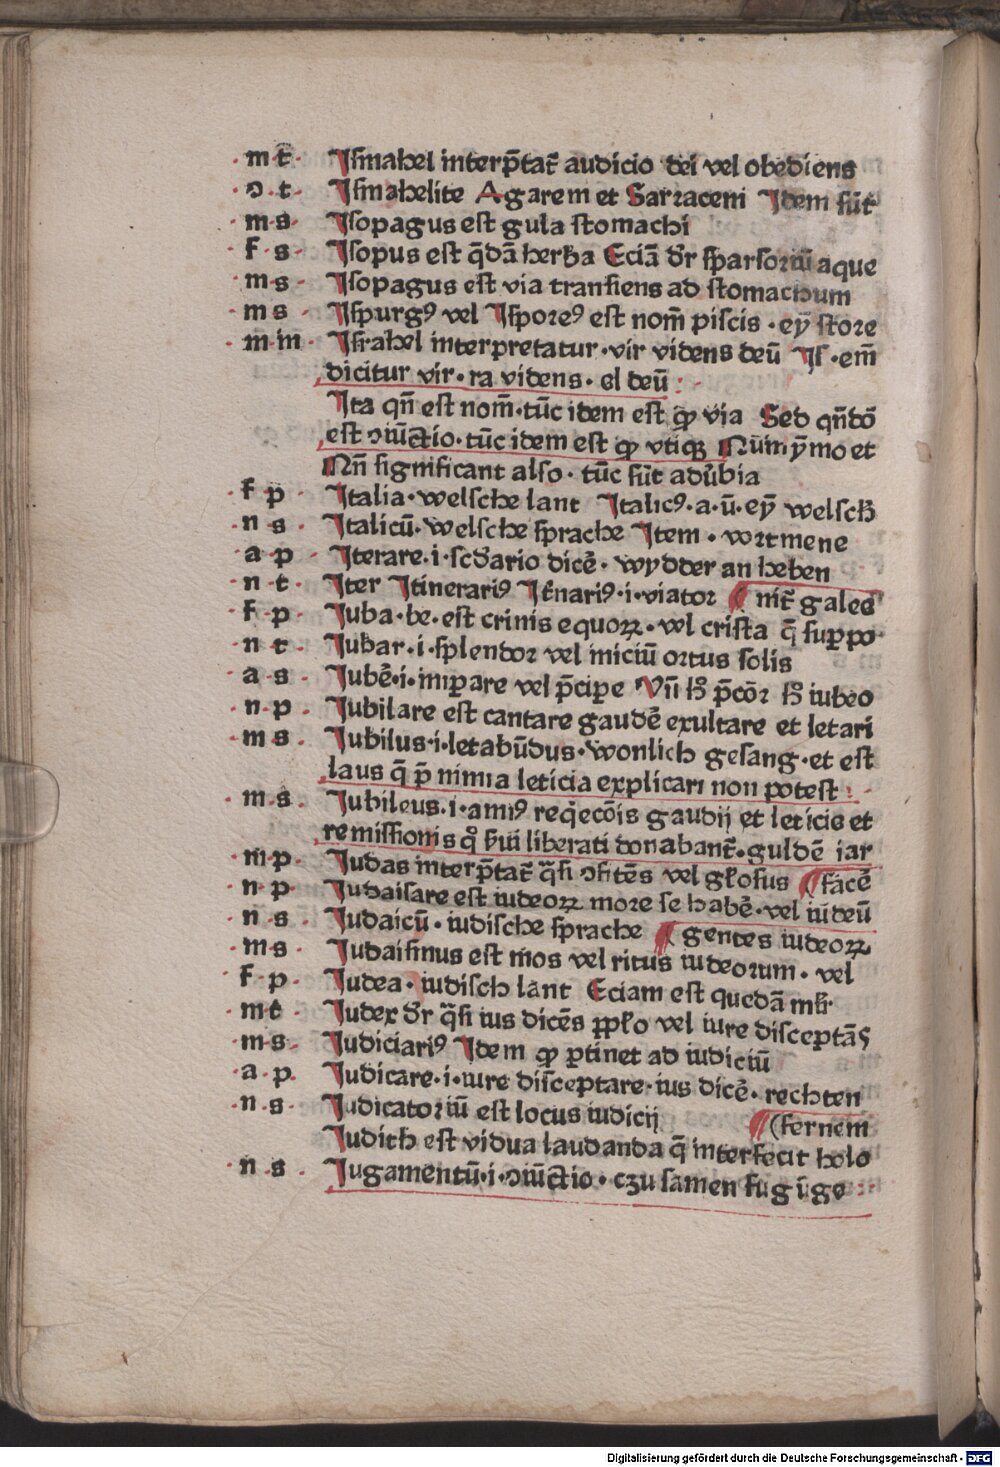 · m t̄ · Iſmahel interp̄tat᷑ audicio dei vel obediens
· ɔ · t · Iſmahelite Agarem et Sarraceni Idem ſūt
· m · s · Iſopagus eſt gula ſtomachi
· f · s · Iſopus eſt q̄dā herƀa Eciā dr̄ ſparſoriū aque
· m · s · Iſopagus eſt via tranſiens ad ſtomachum
· m s · Iſpurgꝰ vel Iſporeꝰ eſt nom̄ piſcis · ey̅ ſtore
· m · m̄ · Iſrahel interpretatur · vir videns deū Iſ · em̄
dicitur vir · ra videns · el deū :
Ita qn̄ eſt nom̄ · tūc idem eſt ꝙ via Sed qn̄dō
eſt ɔiūctio · tūc idem eſt ꝙ vtiqꝫ Nūm ẏmo et
Nn̄ ſignificant alſo · tūc ſūt adūbia
· f · p · Italia · welſche lant Italicꝰ · a · ū · ey̅ welſcħ
· n · s · Italicū · welſche ſprache Item · wortmene
· a · p · Iterare · i · ſcďario dicē · wydder an heben
· n · t · Iter Itinerariꝰ It̄nariꝰ · i · viator ¶ nit᷑ galee
· f · p · Iuba · be · eſt crinis equoꝝ · vel criſta q̄ ſuꝑpo
· n · t · Iubar · i · ſplendor vel iniciū ortus ſolis
· a · s · Iubē · i · imꝑare vel p̄cipe Vn̄ ħ p̄cōr ħ iubeo
· n · p · Iubilare eſt cantare gaudē exultare et letari
· m s · Iubilus · i · letabūdus · wonlich geſang · et eſt
laus q̄ p̄ nimia leticia explicari non poteſt :
· m · s · Iubileus · i · amꝰ req̇ecōis gaudij et leticie et
remiſſionis qͦ ẜui liberati donabant᷑ · guldē iar
· m̄ · p · Iudas interp̄tat᷑ q̄ſi ɔfitēs vel gl̵oſus ¶ facē
· n · p · Iudaiſare eſt iudeoꝝ more ſe habē · vel iudeū
· n · s · Iudaicū · iudiſche ſprache ¶ gentes iudeoꝝ
· m · s · Iudaiſmus eſt mos vel ritus iudeorum · vel
· f · p · Iudea · iudiſch lant Eciam eſt quedā mƀ
· m t · Iudex dr̄ q̄ſi ius dicēs pplo̵ vel iure diſceptās
· m · s · Iudiciariꝰ Idem ꝙ ꝑtinet ad iudiciū
· a · p · Iudicare · i · iure diſceptare · ius dicē · rechten
· n · s · Iudicatoriū eſt locus iudicij ¶ (fernem
Iudith eſt vidua laudanda q̄ interfecit holo
· n · s · Iugamentū · i · ɔiūctio · czu ſamen fugūge
Digitalisierung gefördert durch die Deutsche Forschungsgemeinschaft · DFG